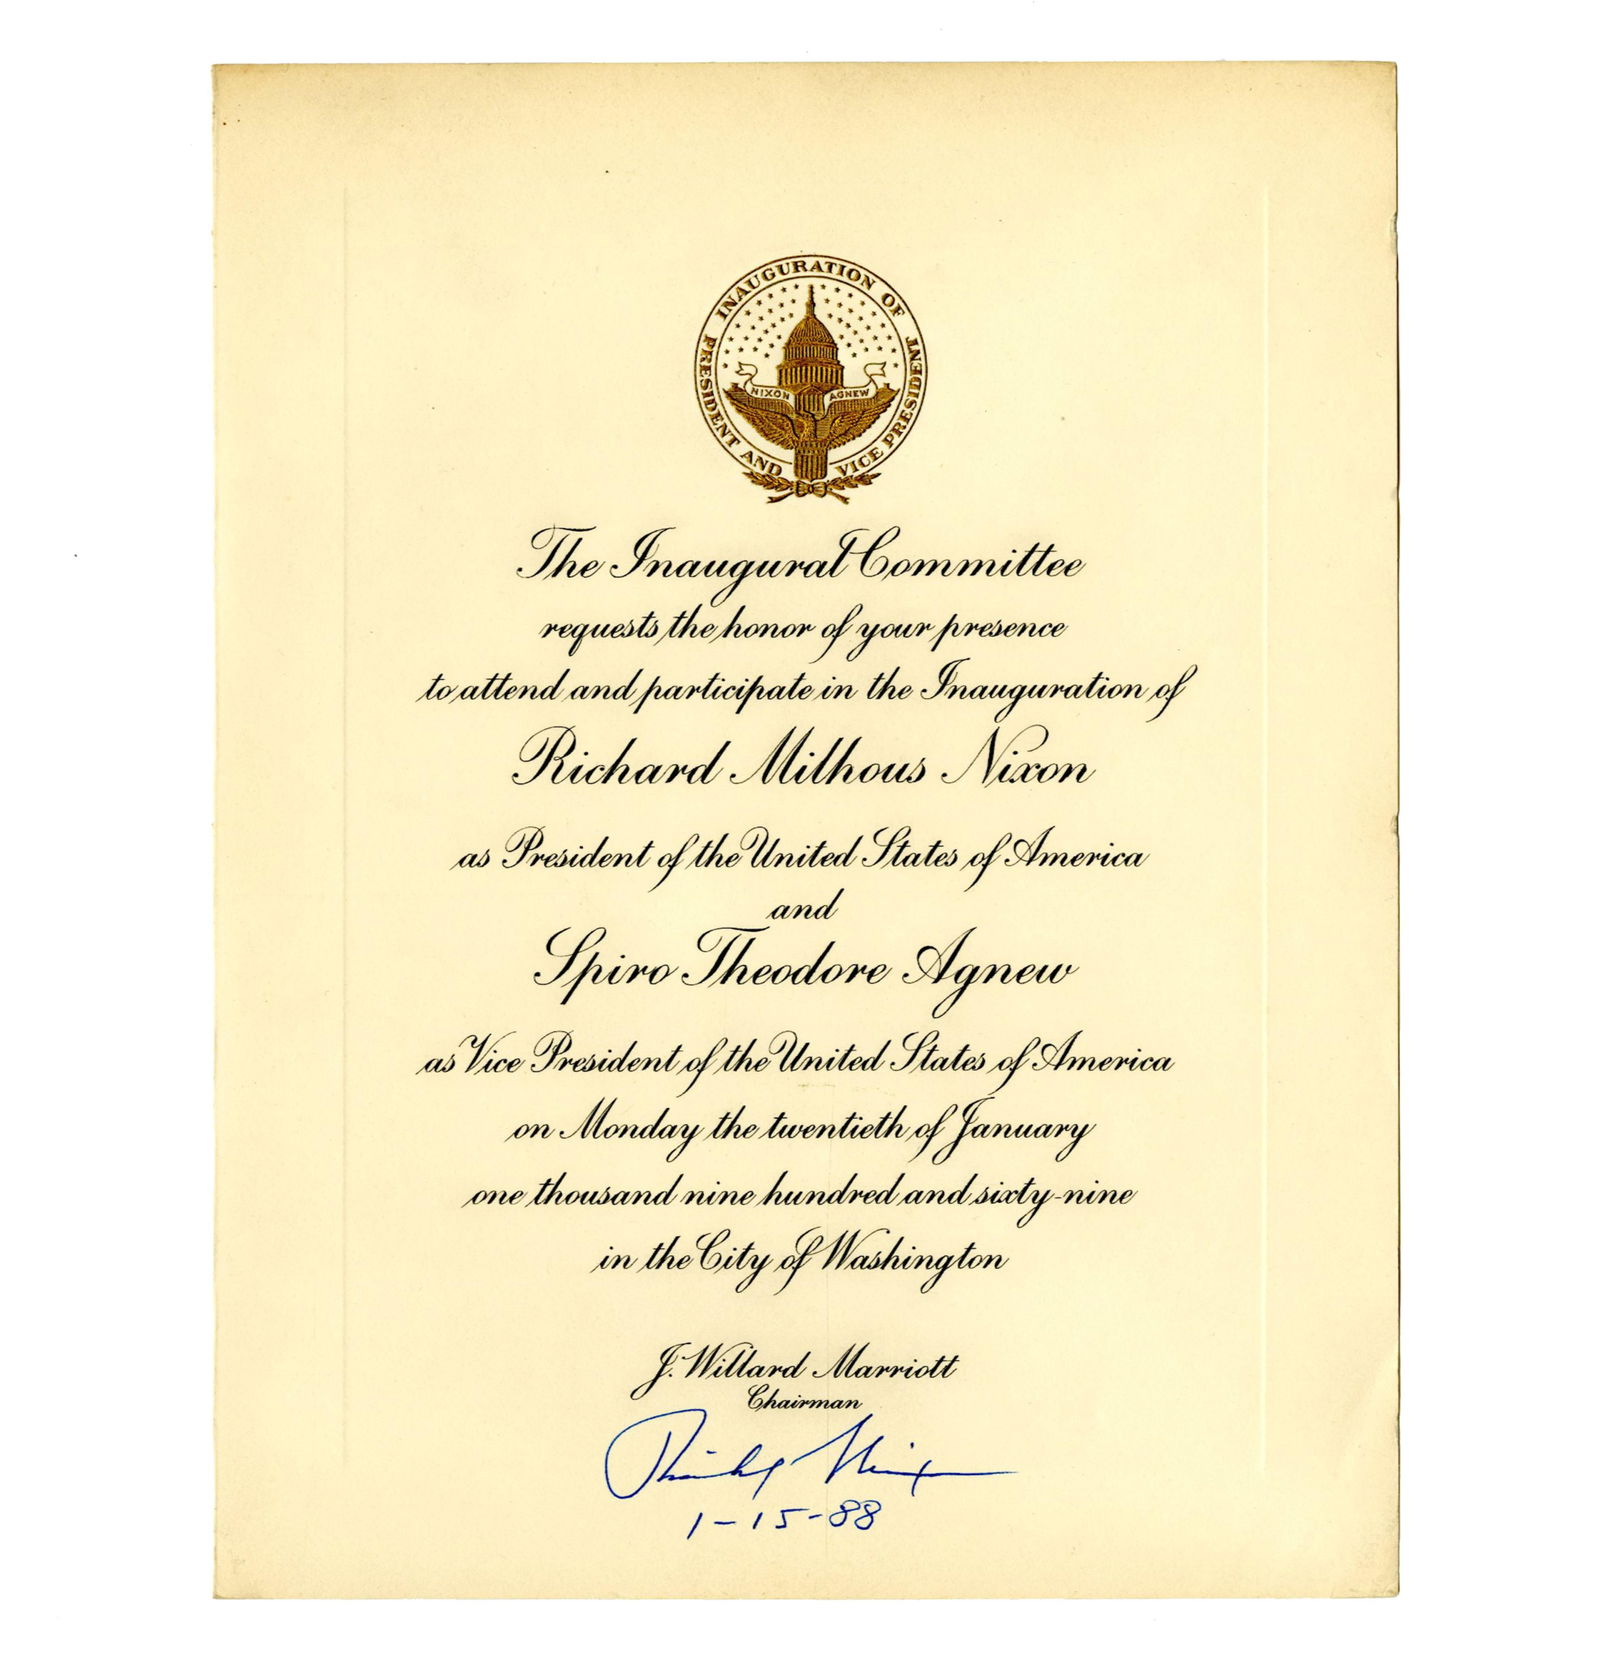 INAUGURATION OF
PRESIDENT AND VICE PRESIDENT
NIXON AGNEW
The Inaugural Committee
requests the honor of your presence
to attend and participate in the Inauguration of
Richard Milhous Nixon
as President of the United States of America
and
Spiro Theodore Agnew
as Vice President of the United States of America
on Monday the twentieth of January
one thousand nine hundred and sixty-nine
in the City of Washington
J. Willard Marriott
Chairman
Richard Nixon
1-15-88